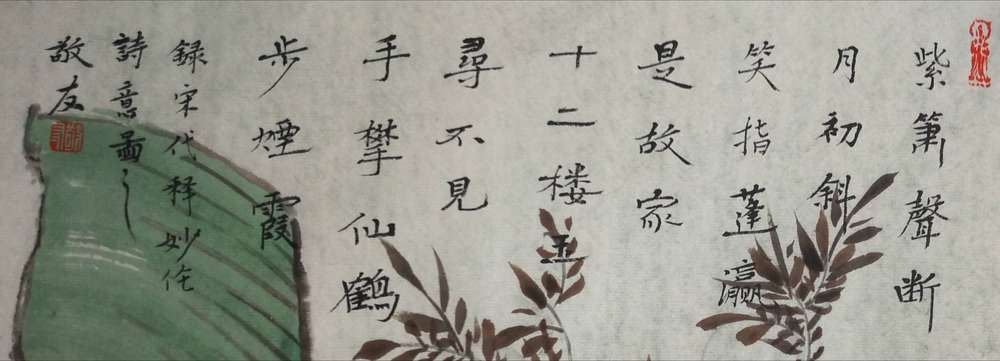 紫簫聲断
月初斜
笑指蓬瀛
是故家
十二楼玉
尋不見
手攀仙鶴
步煙霞
録宋代释妙
詩意啚之
敬友